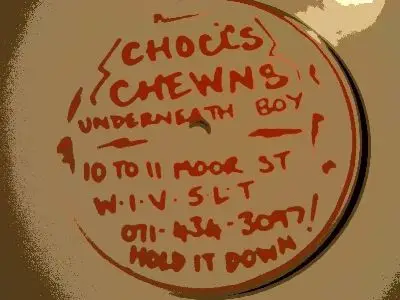 CHOCCS
CHEWNS
UNDERNEATH BOY
10 TO 11 MOOR ST
W.I.V.S.L.T
071-434-3097!
HOLD IT DOWN